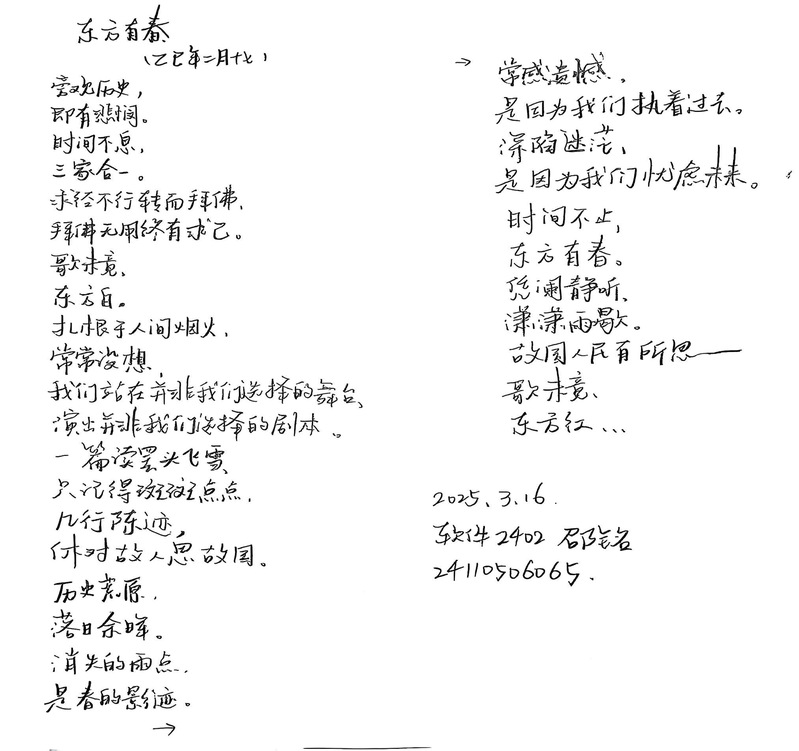 东方有春
(乙巳年二月十七)
喜欢历史，
即有悲悯。
时间不息，
三家合一。
求经不行转而拜佛，
拜佛无用终有求己。
歌未竟，
东方白。
扎根于人间烟火，
常常设想，
我们站在并非我们选择的舞台，
演出并非我们选择的剧本。
一篇读罢头飞雪，
只记得斑斑点点，
几行陈迹，
休对故人思故国。
历史荒原，
落日余晖。
消失的雨点，
是春的影迹。
→
→ 常感遗憾，
是因为我们执着过去。
深陷迷茫，
是因为我们忧虑未来。
时间不止，
东方有春。
凭阑静听，
潇潇雨歇。
故国人民有所思——
歌未竟，
东方红...
2025.3.16.
软件2402 邵铭
24110506065.